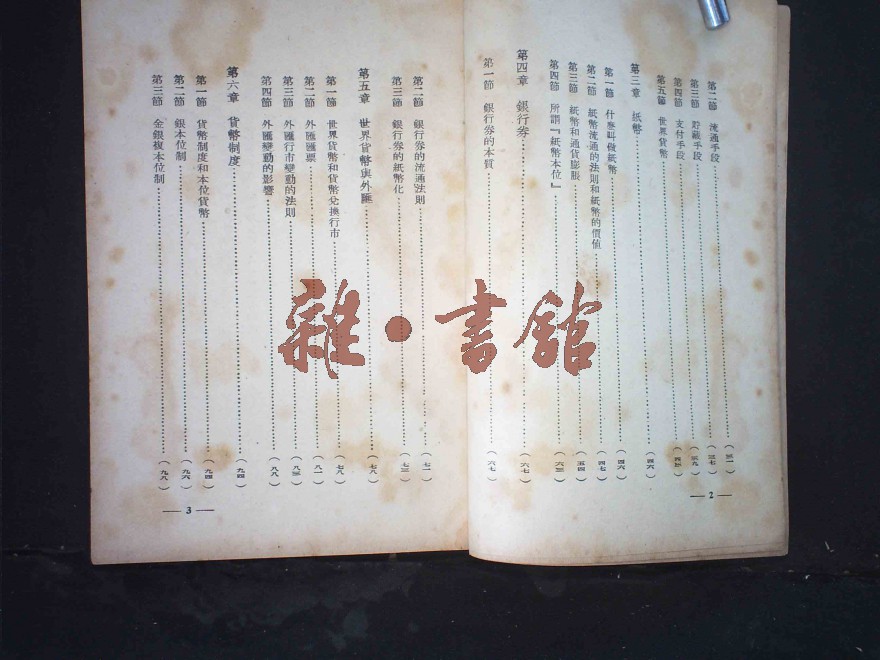 第二節　流通手段……（三一）
第三節　貯藏手段……（三七）
第四節　支付手段……（三九）
第五節　世界貨幣……（四三）
第三章　紙幣……（四六）
第一節　什麽叫做紙幣……（四六）
第二節　紙幣流通的法則和紙幣的價值……（四七）
第三節　紙幣和通貨膨脹……（五四）
第四節　所謂『紙幣本位』……（六三）
第四章　銀行券……（六七）
第一節　銀行券的本質……（六七）
— 2 —
第二節　銀行券的流通法則……（七一）
第三節　銀行券的紙幣化……（七三）
第五章　世界貨幣與外匯……（七八）
第一節　世界貨幣和貨幣兌換行市……（七八）
第二節　外匯匯票……（八一）
第三節　外匯行市變動的法則……（八三）
第四節　外匯變動的影響……（八八）
第六章　貨幣制度……（九四）
第一節　貨幣制度和本位貨幣……（九四）
第二節　銀本位制……（九六）
第三節　金銀複本位制……（九八）
— 3 —
雜·書館